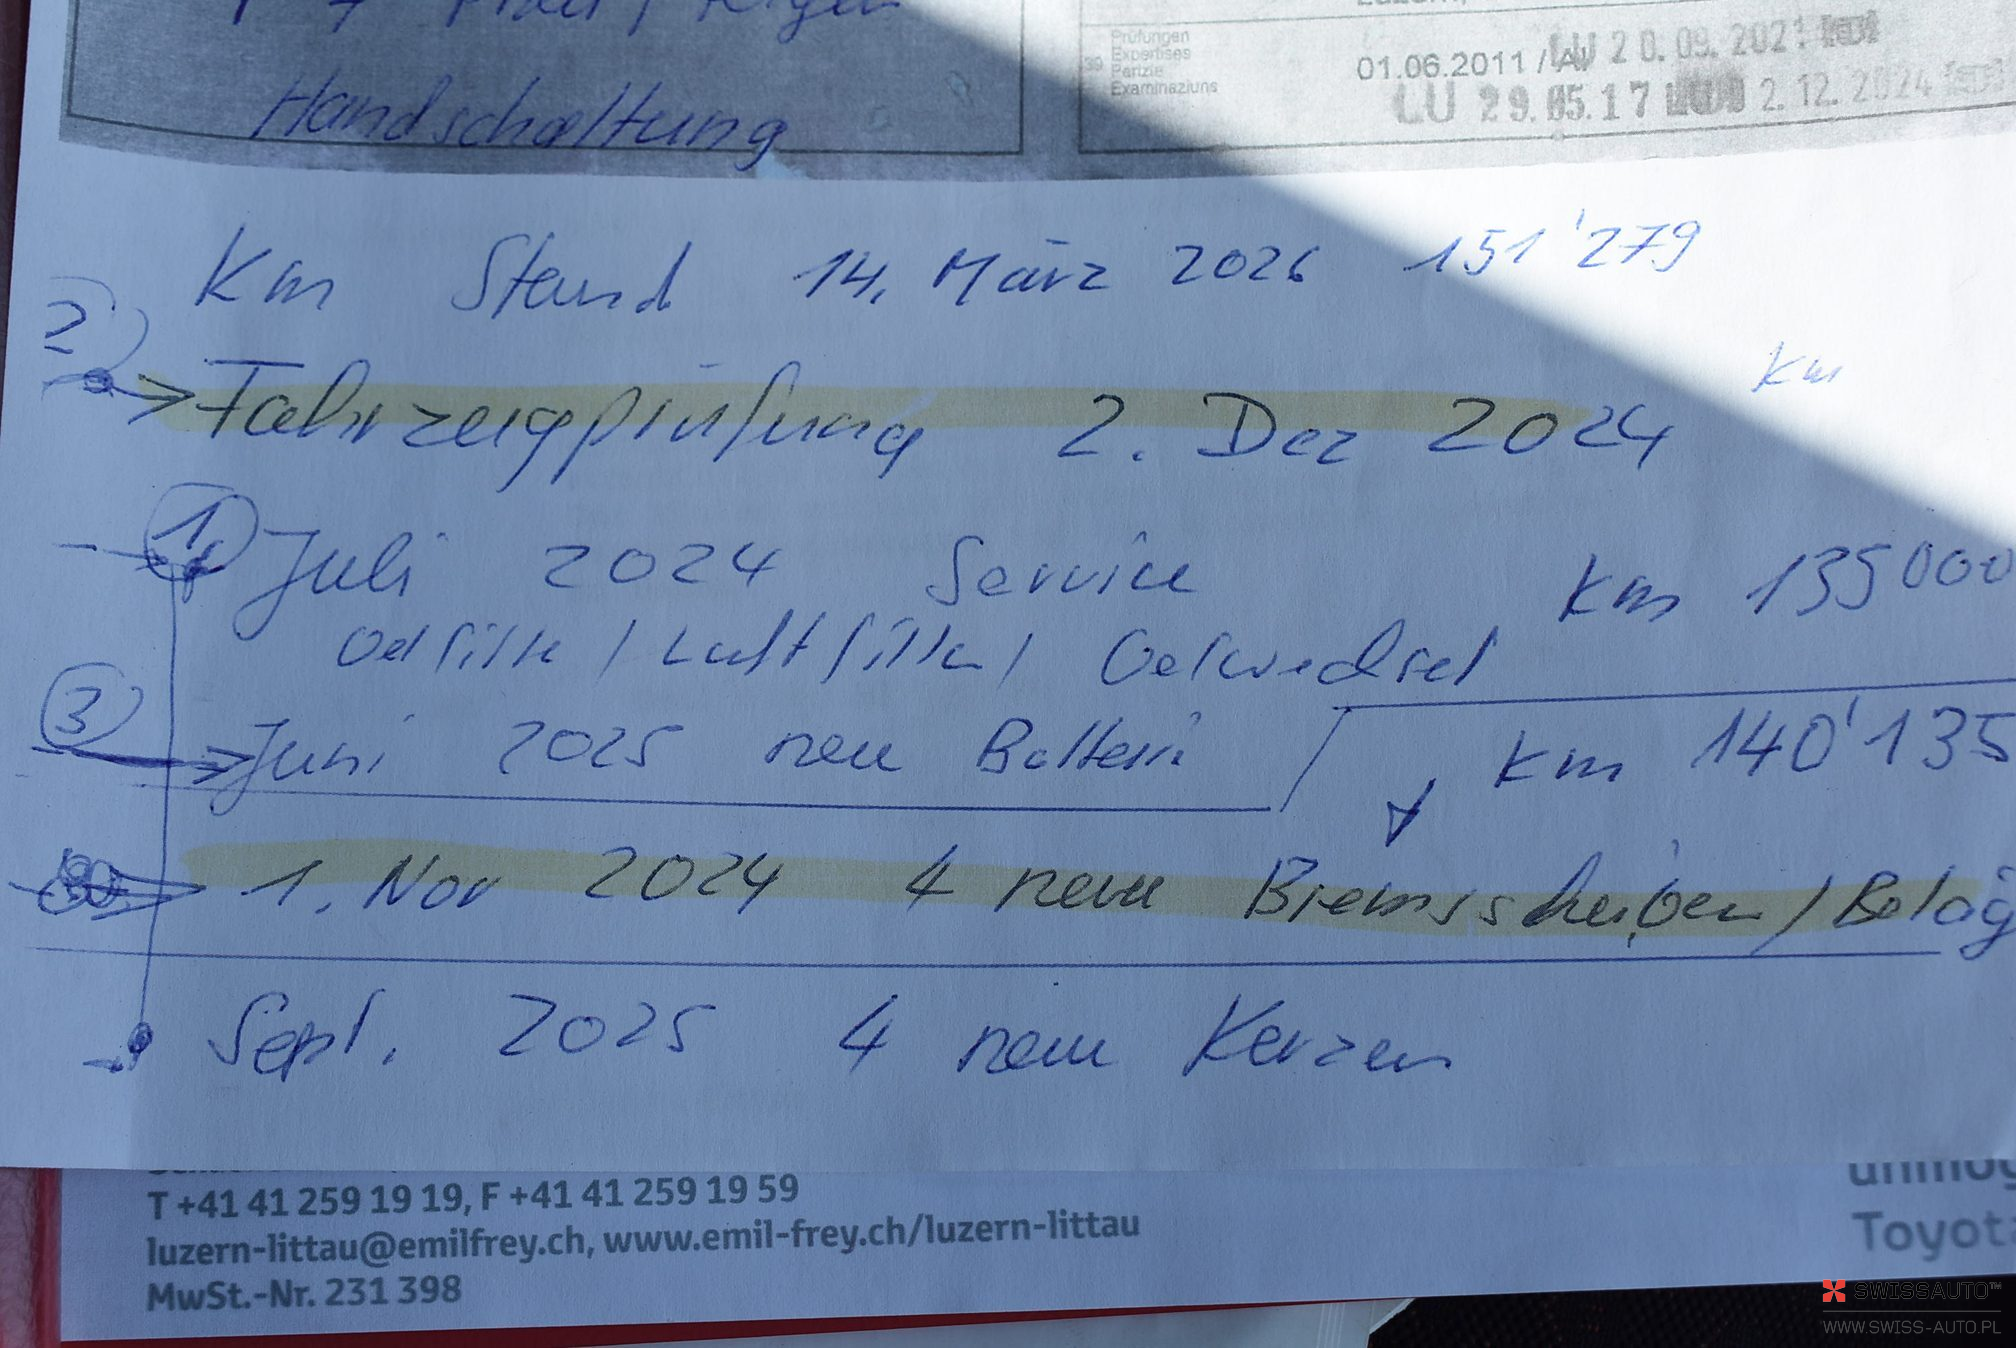 Handschaltung
Luzern,
Prüfungen
Expertises
Perizie
Examinaziuns
39
01.06.2011 / AI
LU 20.09.2021
LU 29.05.17
2.12.2024
Km Stand 14. März 2026 151'279
km
2
Fahrzeugprüfung 2. Dez 2024
1.
Juli 2024 Service Km 135000
Oelfilter / Luftfilter / Oelwechsel
3
Juni 2025 neue Batterie Km 140'135
1. Nov 2024 4 neue Bremsscheiben / Beläg
Sept. 2025 4 neue Kerzen
T +41 41 259 19 19, F +41 41 259 19 59
luzern-littau@emilfrey.ch, www.emil-frey.ch/luzern-littau
MwSt.-Nr. 231 398
Toyota
SWISSAUTO™
WWW.SWISS-AUTO.PL